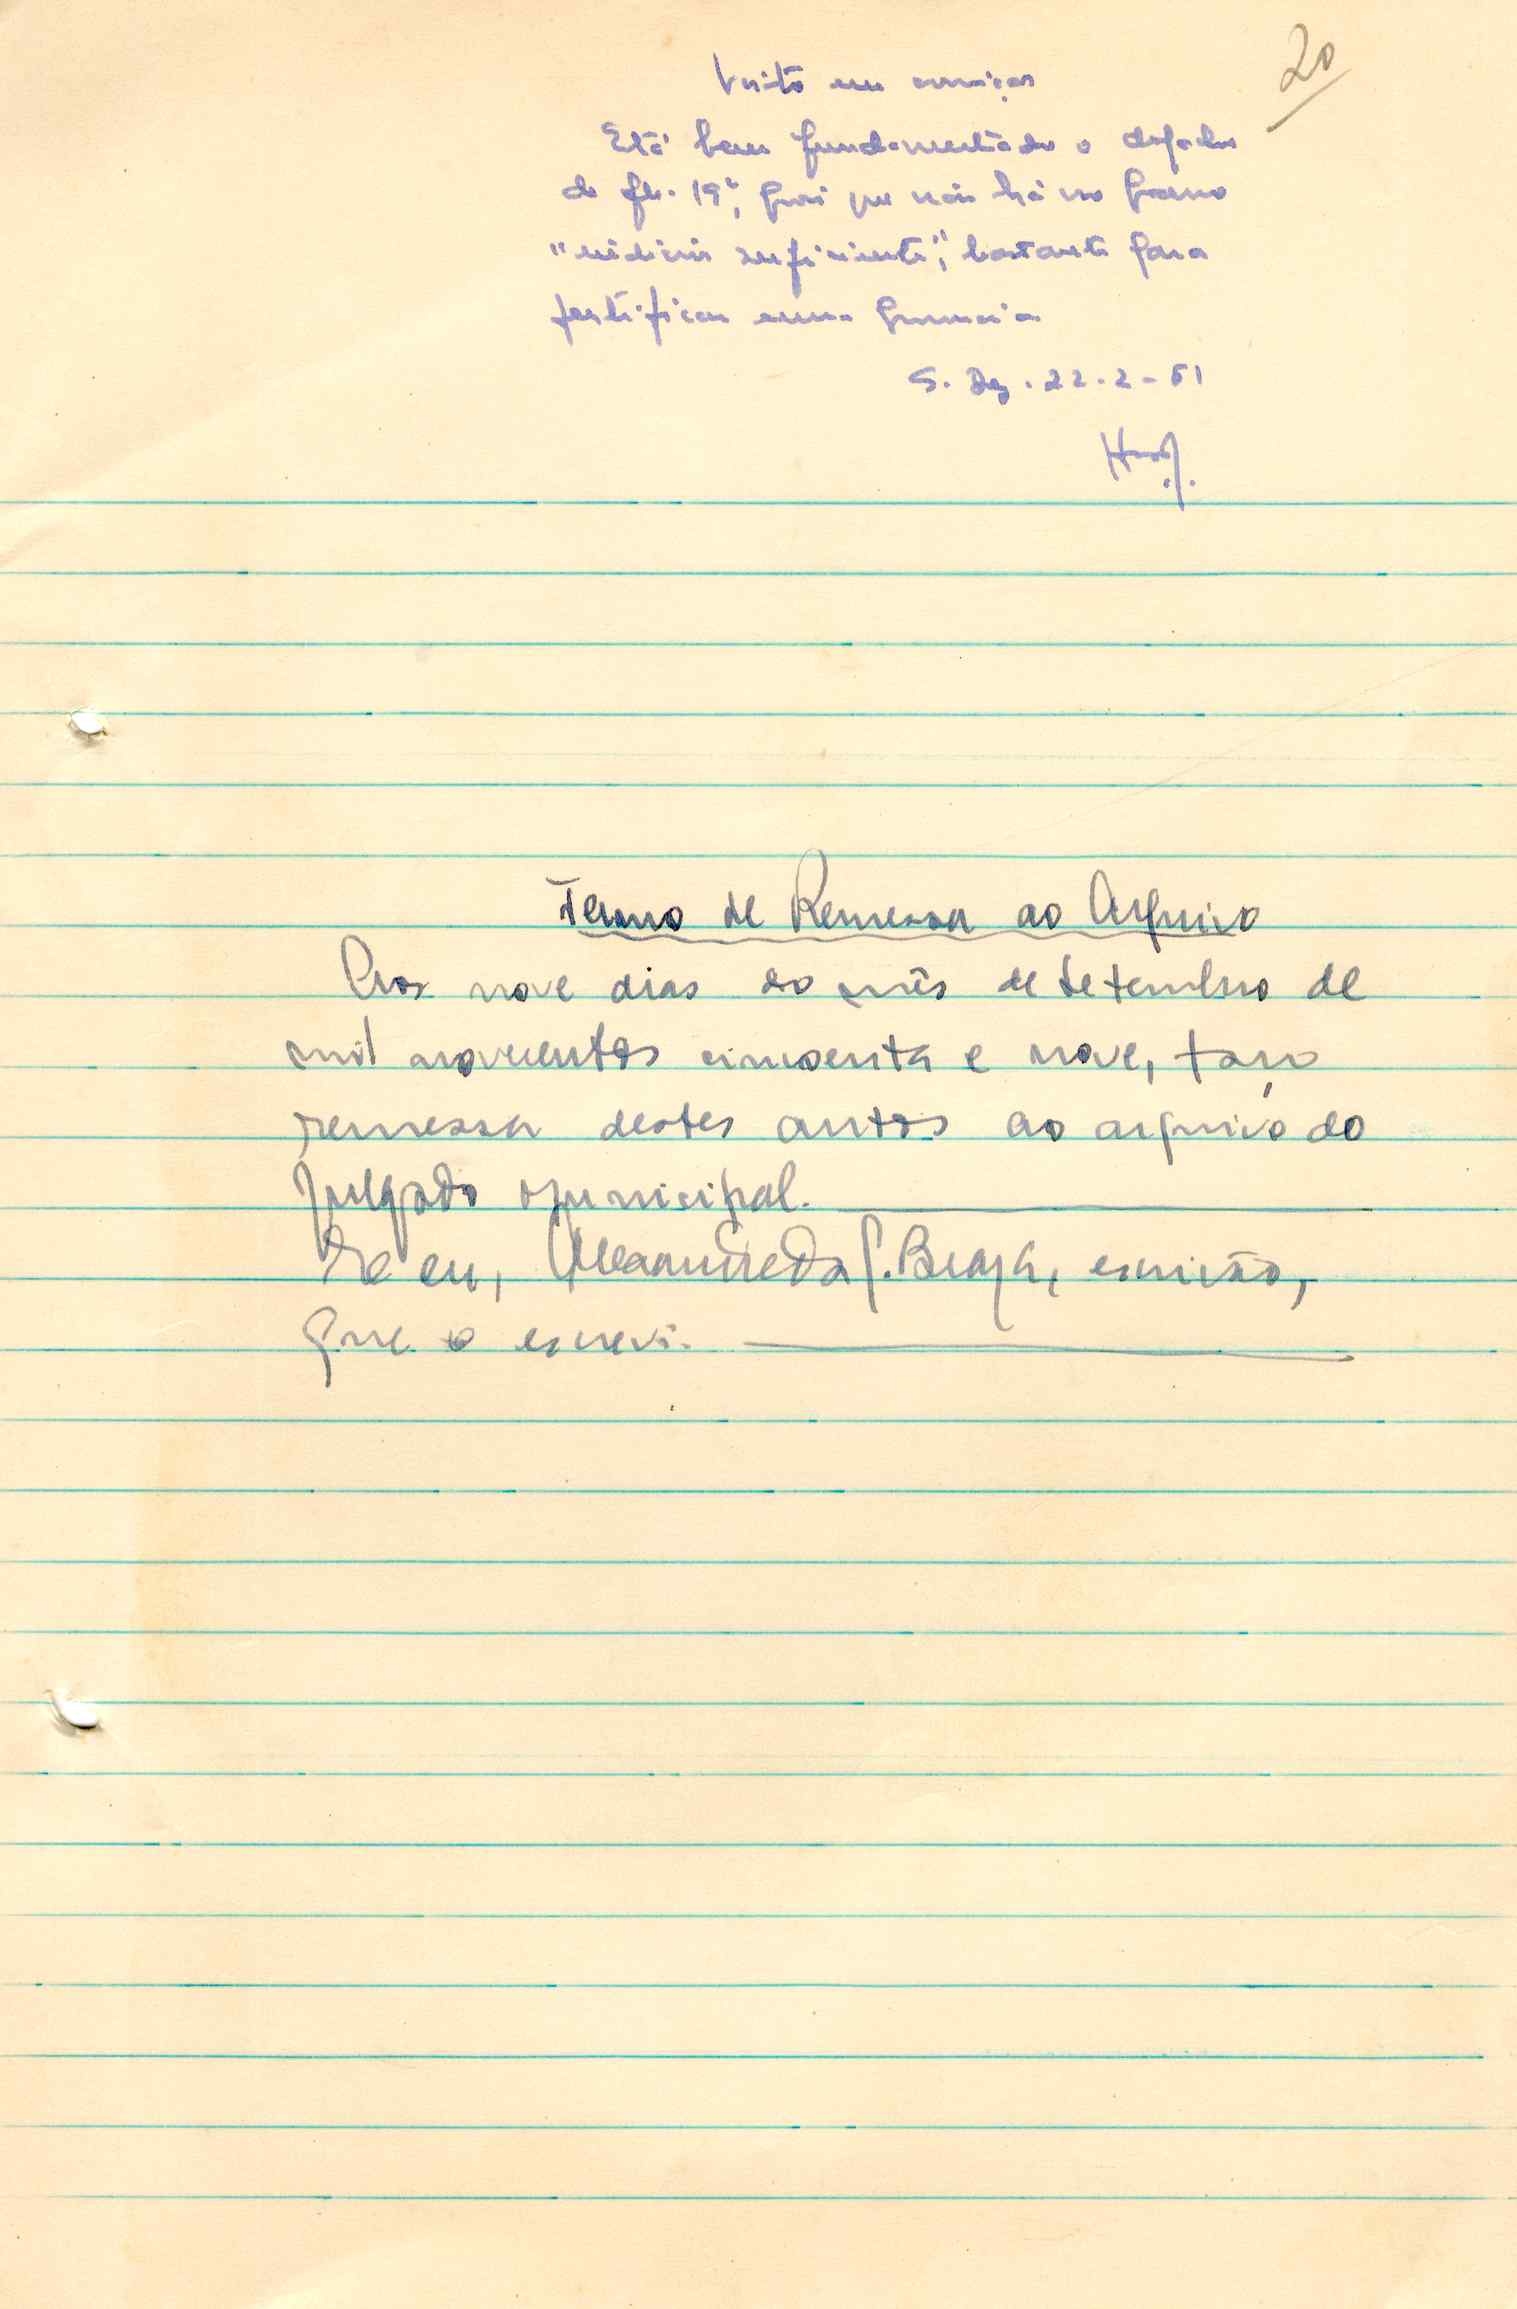 20
Visto em correição
Está bem fundamentado o despacho
de fls. 19v, pois que não há no processo
"indício suficiente", bastante para
justificar uma pronuncia
22-2-61
Termo de Remessa ao Arquivo
Aos nove dias do mês de setembro de
mil novecentos cincoenta e nove, faço
remessa destes autos ao arquivo do
Julgado Municipal.
E eu, Braga, escrivão,
que o escrevi.